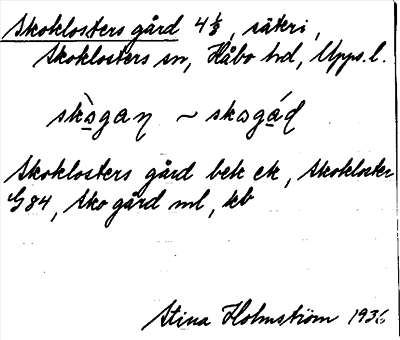 Skoklosters gård 4⅓, säteri,
Skoklosters sn, Håbo hd, Upps. l.
skògan ~ skogád
Skoklosters gård bek ek, Skokloster
G 84, Sko gård ml, kb
Stina Holmström 1936